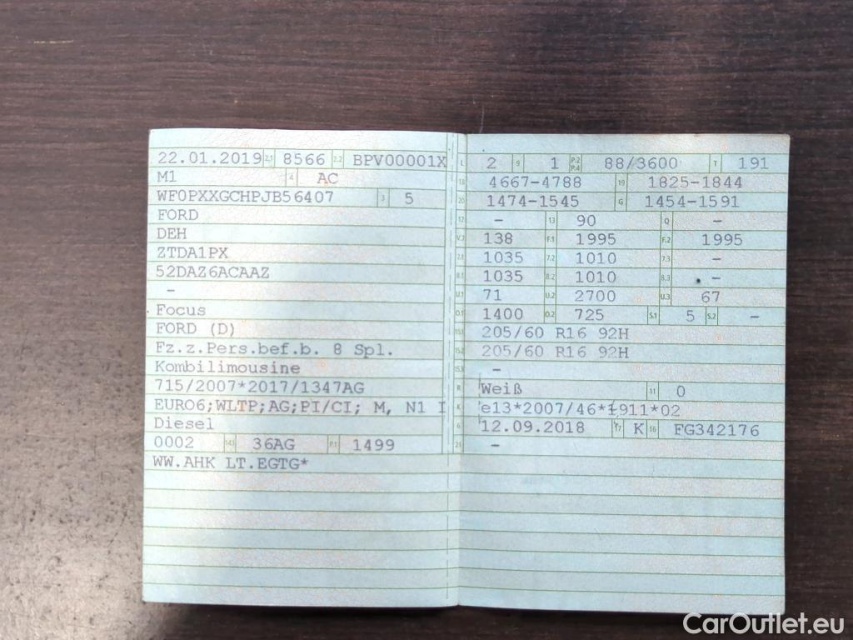 22.01.2019 8566 BPV00001X
M1 AC
WF0PXXGCHPJB56407 5
FORD
DEH
ZTDA1PX
52DAZ6ACAAZ
–
Focus
FORD (D)
Fz.z.Pers.bef.b. 8 Spl.
Kombilimousine
715/2007*2017/1347AG
EURO6;WLTP;AG;PI/CI; M, N1 I
Diesel
0002 36AG 1499
WW.AHK LT.EGTG*
L 2 9 1 P.2 P.4 88/3600 T 191
18 4667-4788 19 1825-1844
20 1474-1545 G 1454-1591
12 – 13 90 Q –
V.7 138 F.1 1995 F.2 1995
7.1 1035 7.2 1010 7.3 –
8.1 1035 8.2 1010 8.3 –
U.1 71 U.2 2700 U.3 67
O.1 1400 O.2 725 S.1 5 S.2 –
15.1 205/60 R16 92H
15.2 205/60 R16 92H
15.3 –
R Weiß 11 0
K e13*2007/46*1911*02
6 12.09.2018 17 K 16 FG342176
21 –
CarOutlet.eu